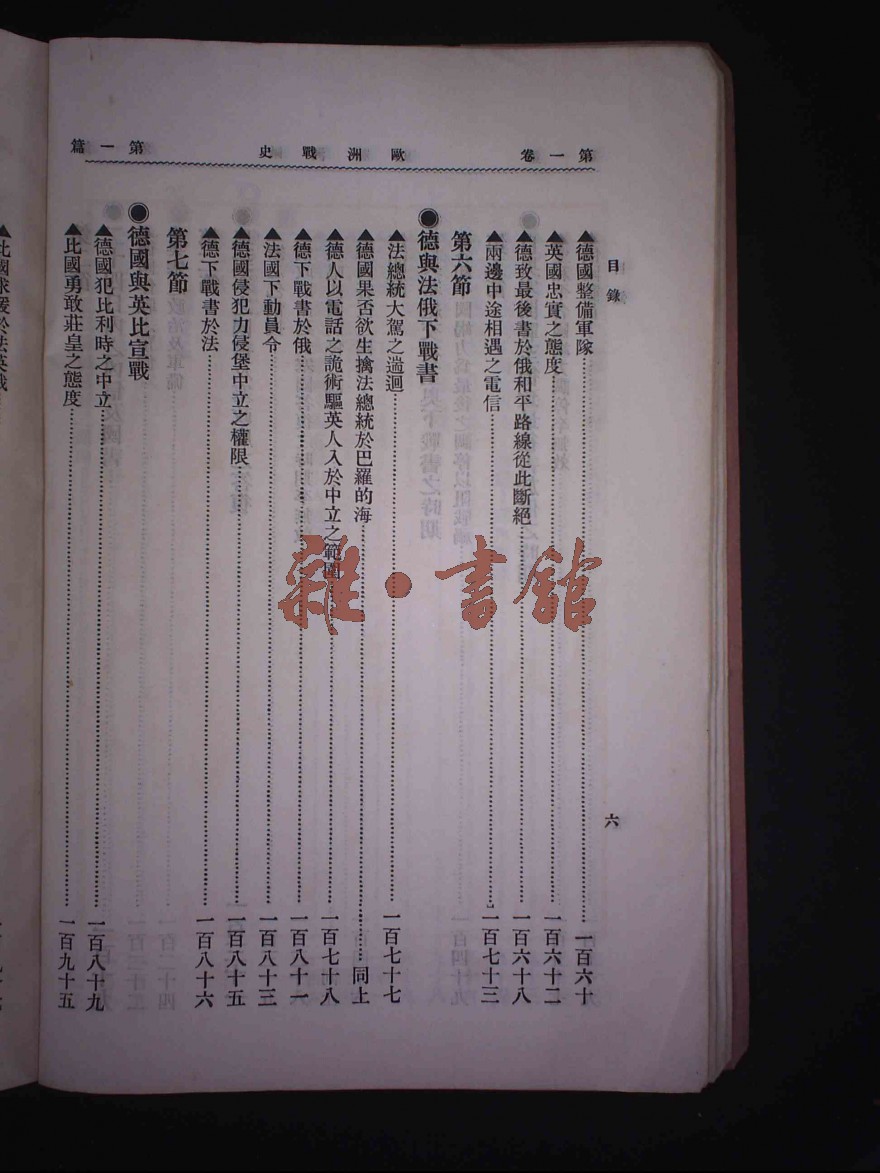 第一卷 歐洲戰史 第一篇
目錄 六
▲德國整備軍隊……一百六十
▲英國忠實之態度……一百六十二
▲德致最後書於俄和平路線從此斷絕……一百六十八
▲兩邊中途相遇之電信……一百七十三
第六節
◉德與法俄下戰書
▲法總統大駕之遄迴……一百七十七
▲德國果否欲生擒法總統於巴羅的海……同上
▲德人以電話之詭術驅英人入於中立之範圍……一百七十八
▲德下戰書於俄……一百八十一
▲法國下動員令……一百八十三
▲德國侵犯力侵堡中立之權限……一百八十五
▲德下戰書於法……一百八十六
第七節
◉德國與英比宣戰
▲德國犯比利時之中立……一百八十九
▲比國勇敢莊皇之態度……一百九十五
雜·書館